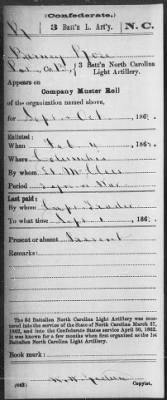 (Confederate.)
3 Batt'n L. Art'y. N. C.
3 Batt'n North Carolina
Light Artillery.
Appears on
Company Muster Roll
of the organization named above,
for Sept & Oct, 186
Enlisted:
When Feb 186
Where Columbia
By whom Lt. McClees
Period
Last paid:
By whom Capt.
To what time Sept 1, 186
Present or absent Present
Remarks:
The 3d Battalion North Carolina Light Artillery was mustered
into the service of the State of North Carolina March 27,
1862, and into the Confederate States service April 30, 1862.
It was known for a few months when first organized as the 1st
Battalion North Carolina Light Artillery.
Book mark:
(642)
Copyist.